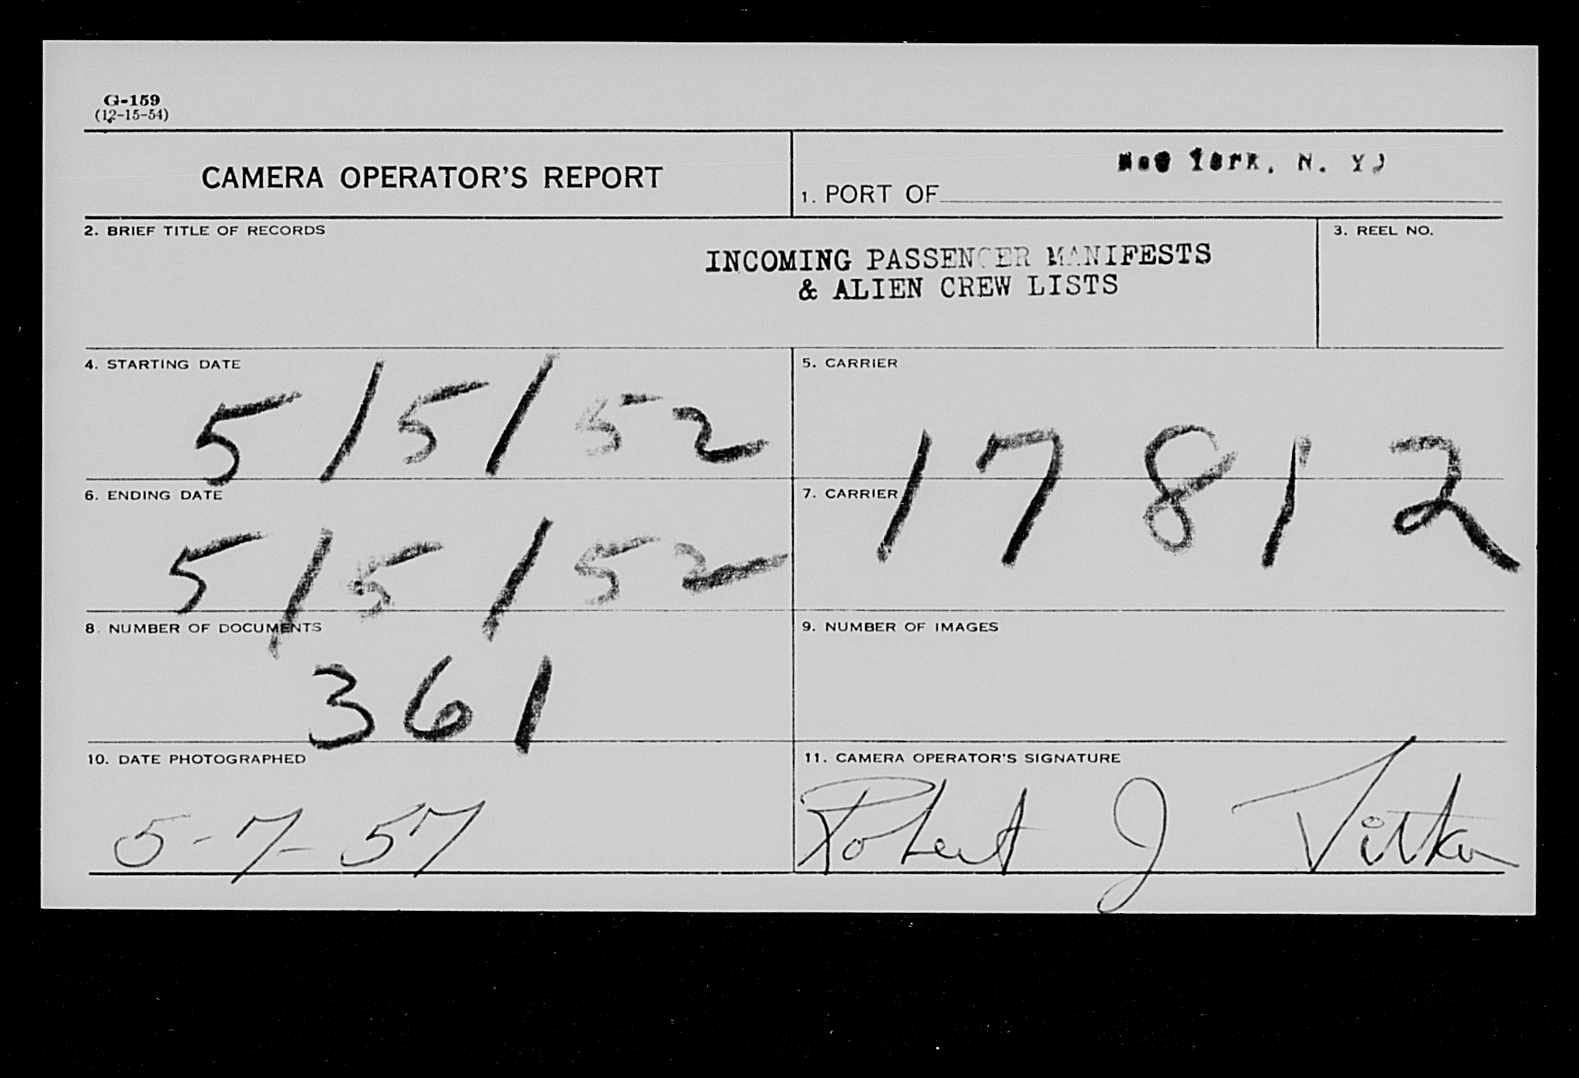 G-159
(12-15-54)
CAMERA OPERATOR'S REPORT
1. PORT OF New York, N. Y.
2. BRIEF TITLE OF RECORDS
INCOMING PASSENGER MANIFESTS
& ALIEN CREW LISTS
3. REEL NO.
4. STARTING DATE
5/5/52
5. CARRIER
17812
6. ENDING DATE
5/5/52
7. CARRIER
8. NUMBER OF DOCUMENTS
361
9. NUMBER OF IMAGES
10. DATE PHOTOGRAPHED
5-7-57
11. CAMERA OPERATOR'S SIGNATURE
Robert J